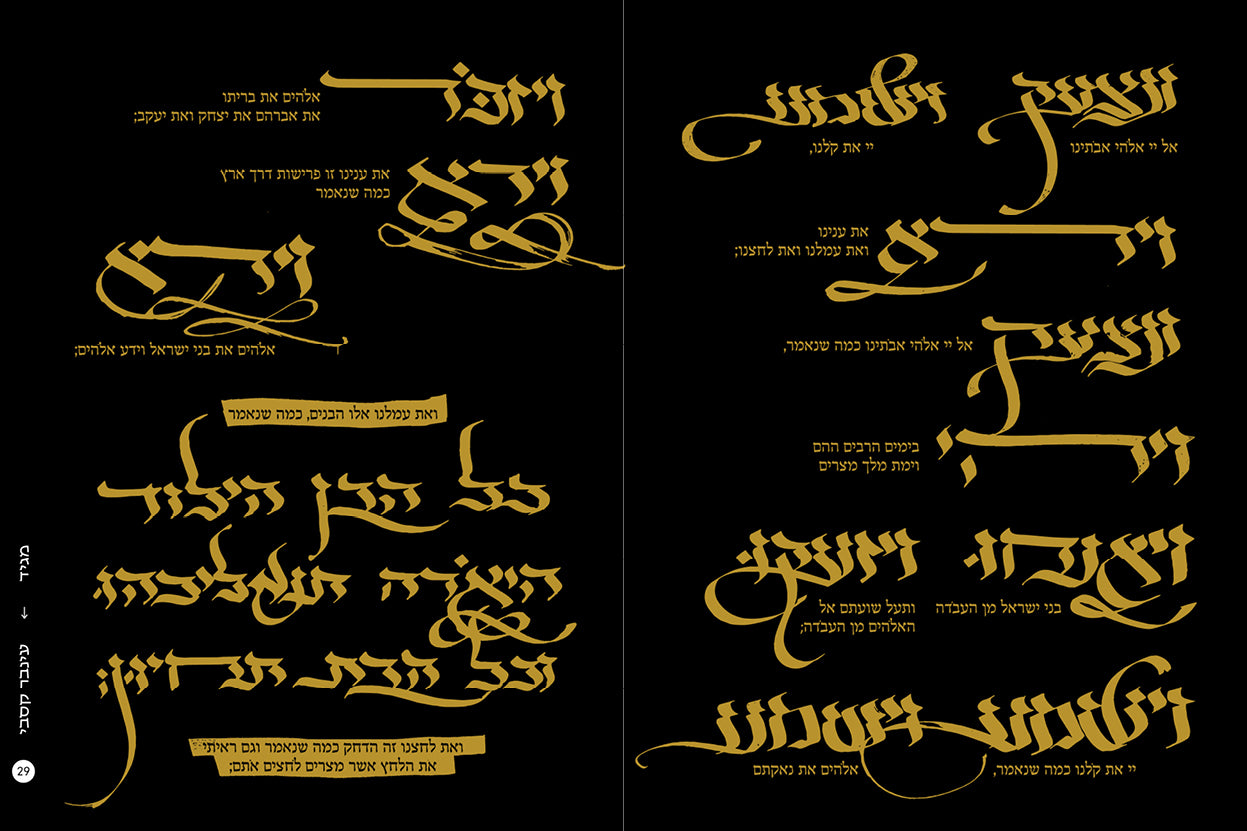 ונצעק
אל יי אלהי אבֹתינו
וישמע
יי את קֹלנו,
וירא
את ענינו
ואת עמלנו ואת לחצנו;
ונצעק
אל יי אלהי אבֹתינו כמה שנאמר,
ויהי
בימים הרבים ההם
וימת מלך מצרים
ויאנחו
בני ישראל מן העבֹדה
ויזעקו
ותעל שועתם אל
האלהים מן העבֹדה;
וישמע
יי את קֹלנו כמה שנאמר,
וישמע
אלהים את נאקתם
ויזכֹּר
אלהים את בריתו
את אברהם את יצחק ואת יעקב;
וירא
את ענינו זו פרישות דרך ארץ
כמה שנאמר
וירא
אלהים את בני ישראל וידע אלהים;
ואת עמלנו אלו הבנים, כמה שנאמר
כל הבן הילוד
היאֹרה תשליכהו
וכל הבת תחיון:
ואת לחצנו זה הדחק כמה שנאמר וגם ראיתי
את הלחץ אשר מצרים לחצים אֹתם;
עינבר קטבי → מגיד
29